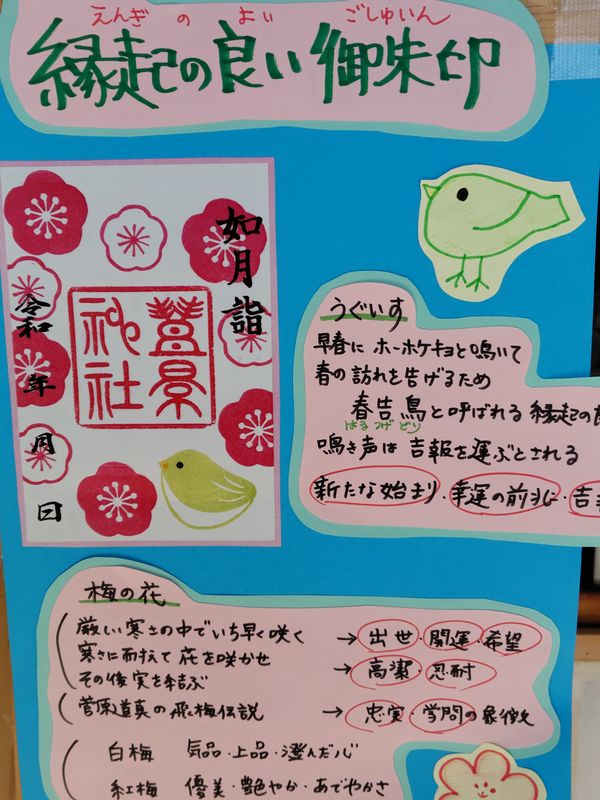 えんぎ の よい ごしゅいん
縁起の良い御朱印
如月詣
神社
令和 年 月 日
うぐいす
早春に ホーホケキョと鳴いて
春の訪れを告げるため
春告鳥と呼ばれる 縁起の良
はるつげどり
鳴き声は 吉報を運ぶとされる
新たな始まり・幸運の前兆・吉
梅の花
厳しい寒さの中でいち早く咲く → 出世・開運・希望
寒さに耐えて 花を咲かせ → 高潔・忍耐
その後実を結ぶ
菅原道真の飛梅伝説 → 忠実・学問の象徴
白梅 気品・上品・澄んだ心
紅梅 優美・艶やか・あでやかさ